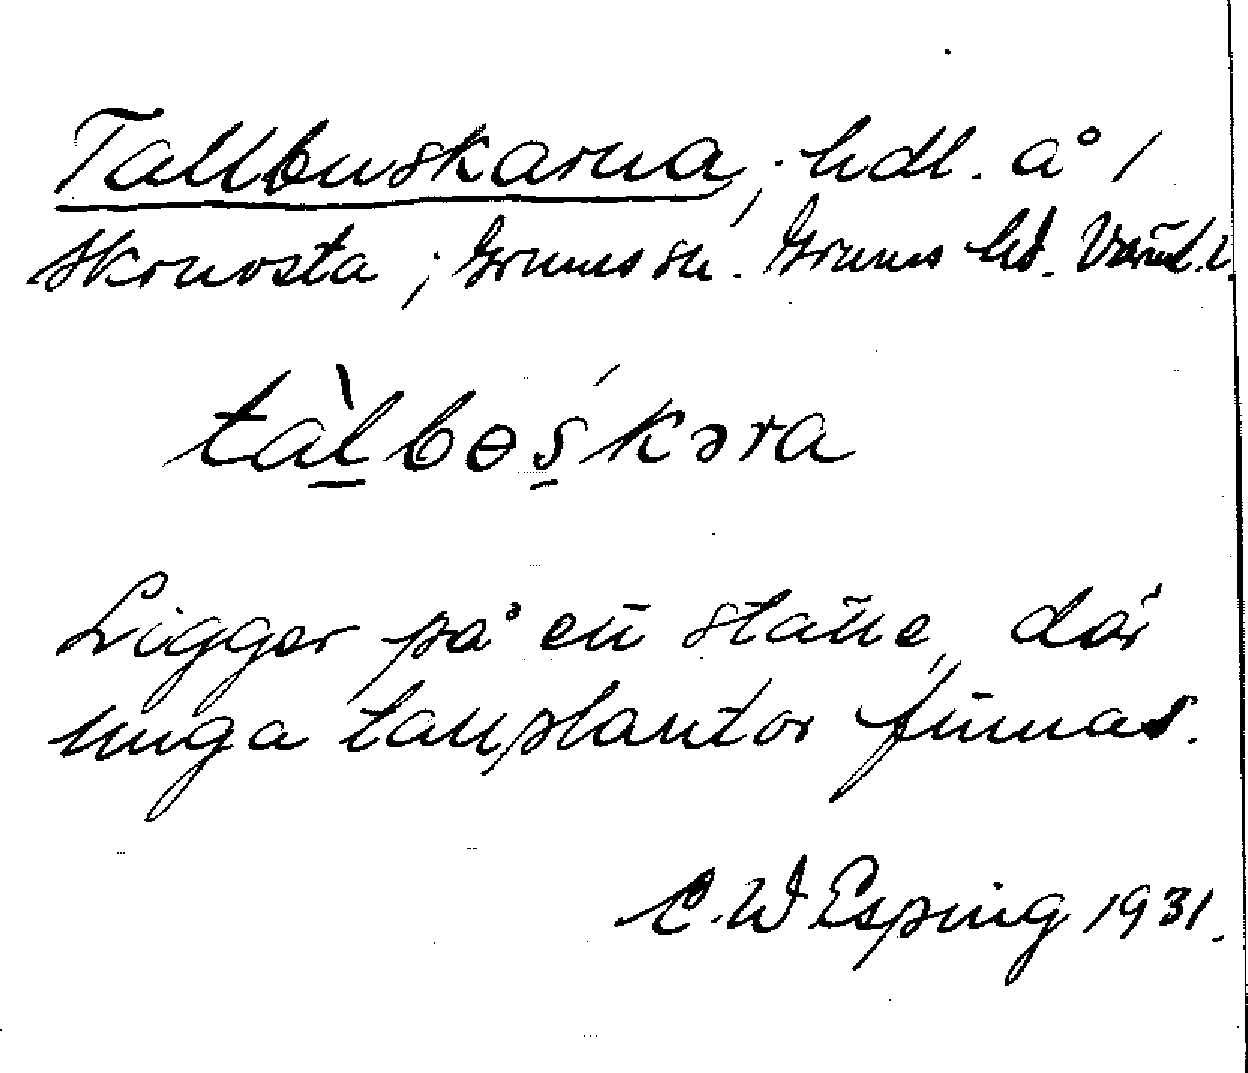 Tallbuskarna, hdl. å 1
Skruvsta, Grums sn. Grums hd. Värml. l.
tàlbɵskəra
Ligger på en̄ställe, där
unga tallplantor fin̄nas.
C.W Esping 1931.